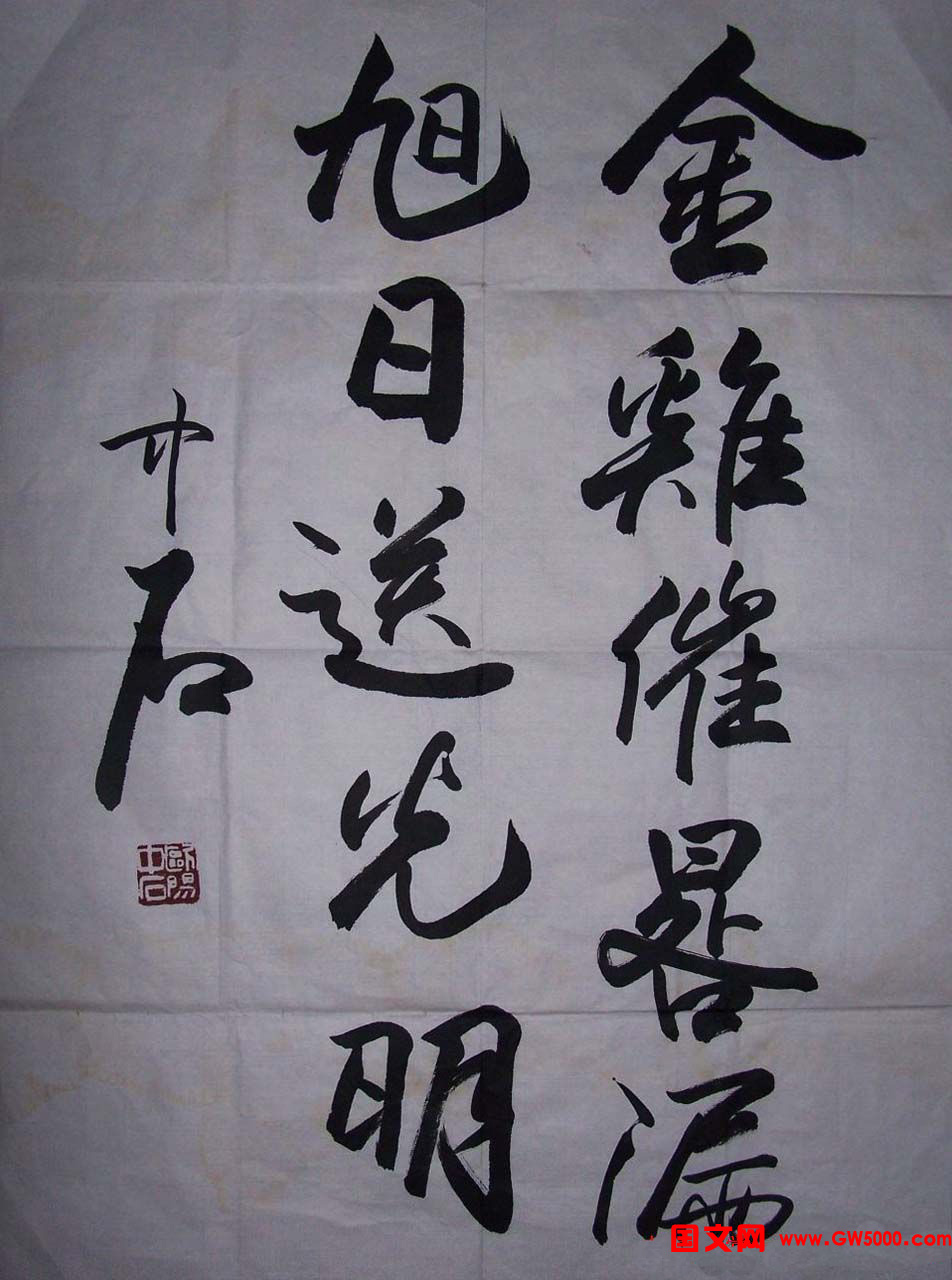 金雞催晷漏
旭日送光明
中石
歐陽中石
国文网 www.GW5000.com